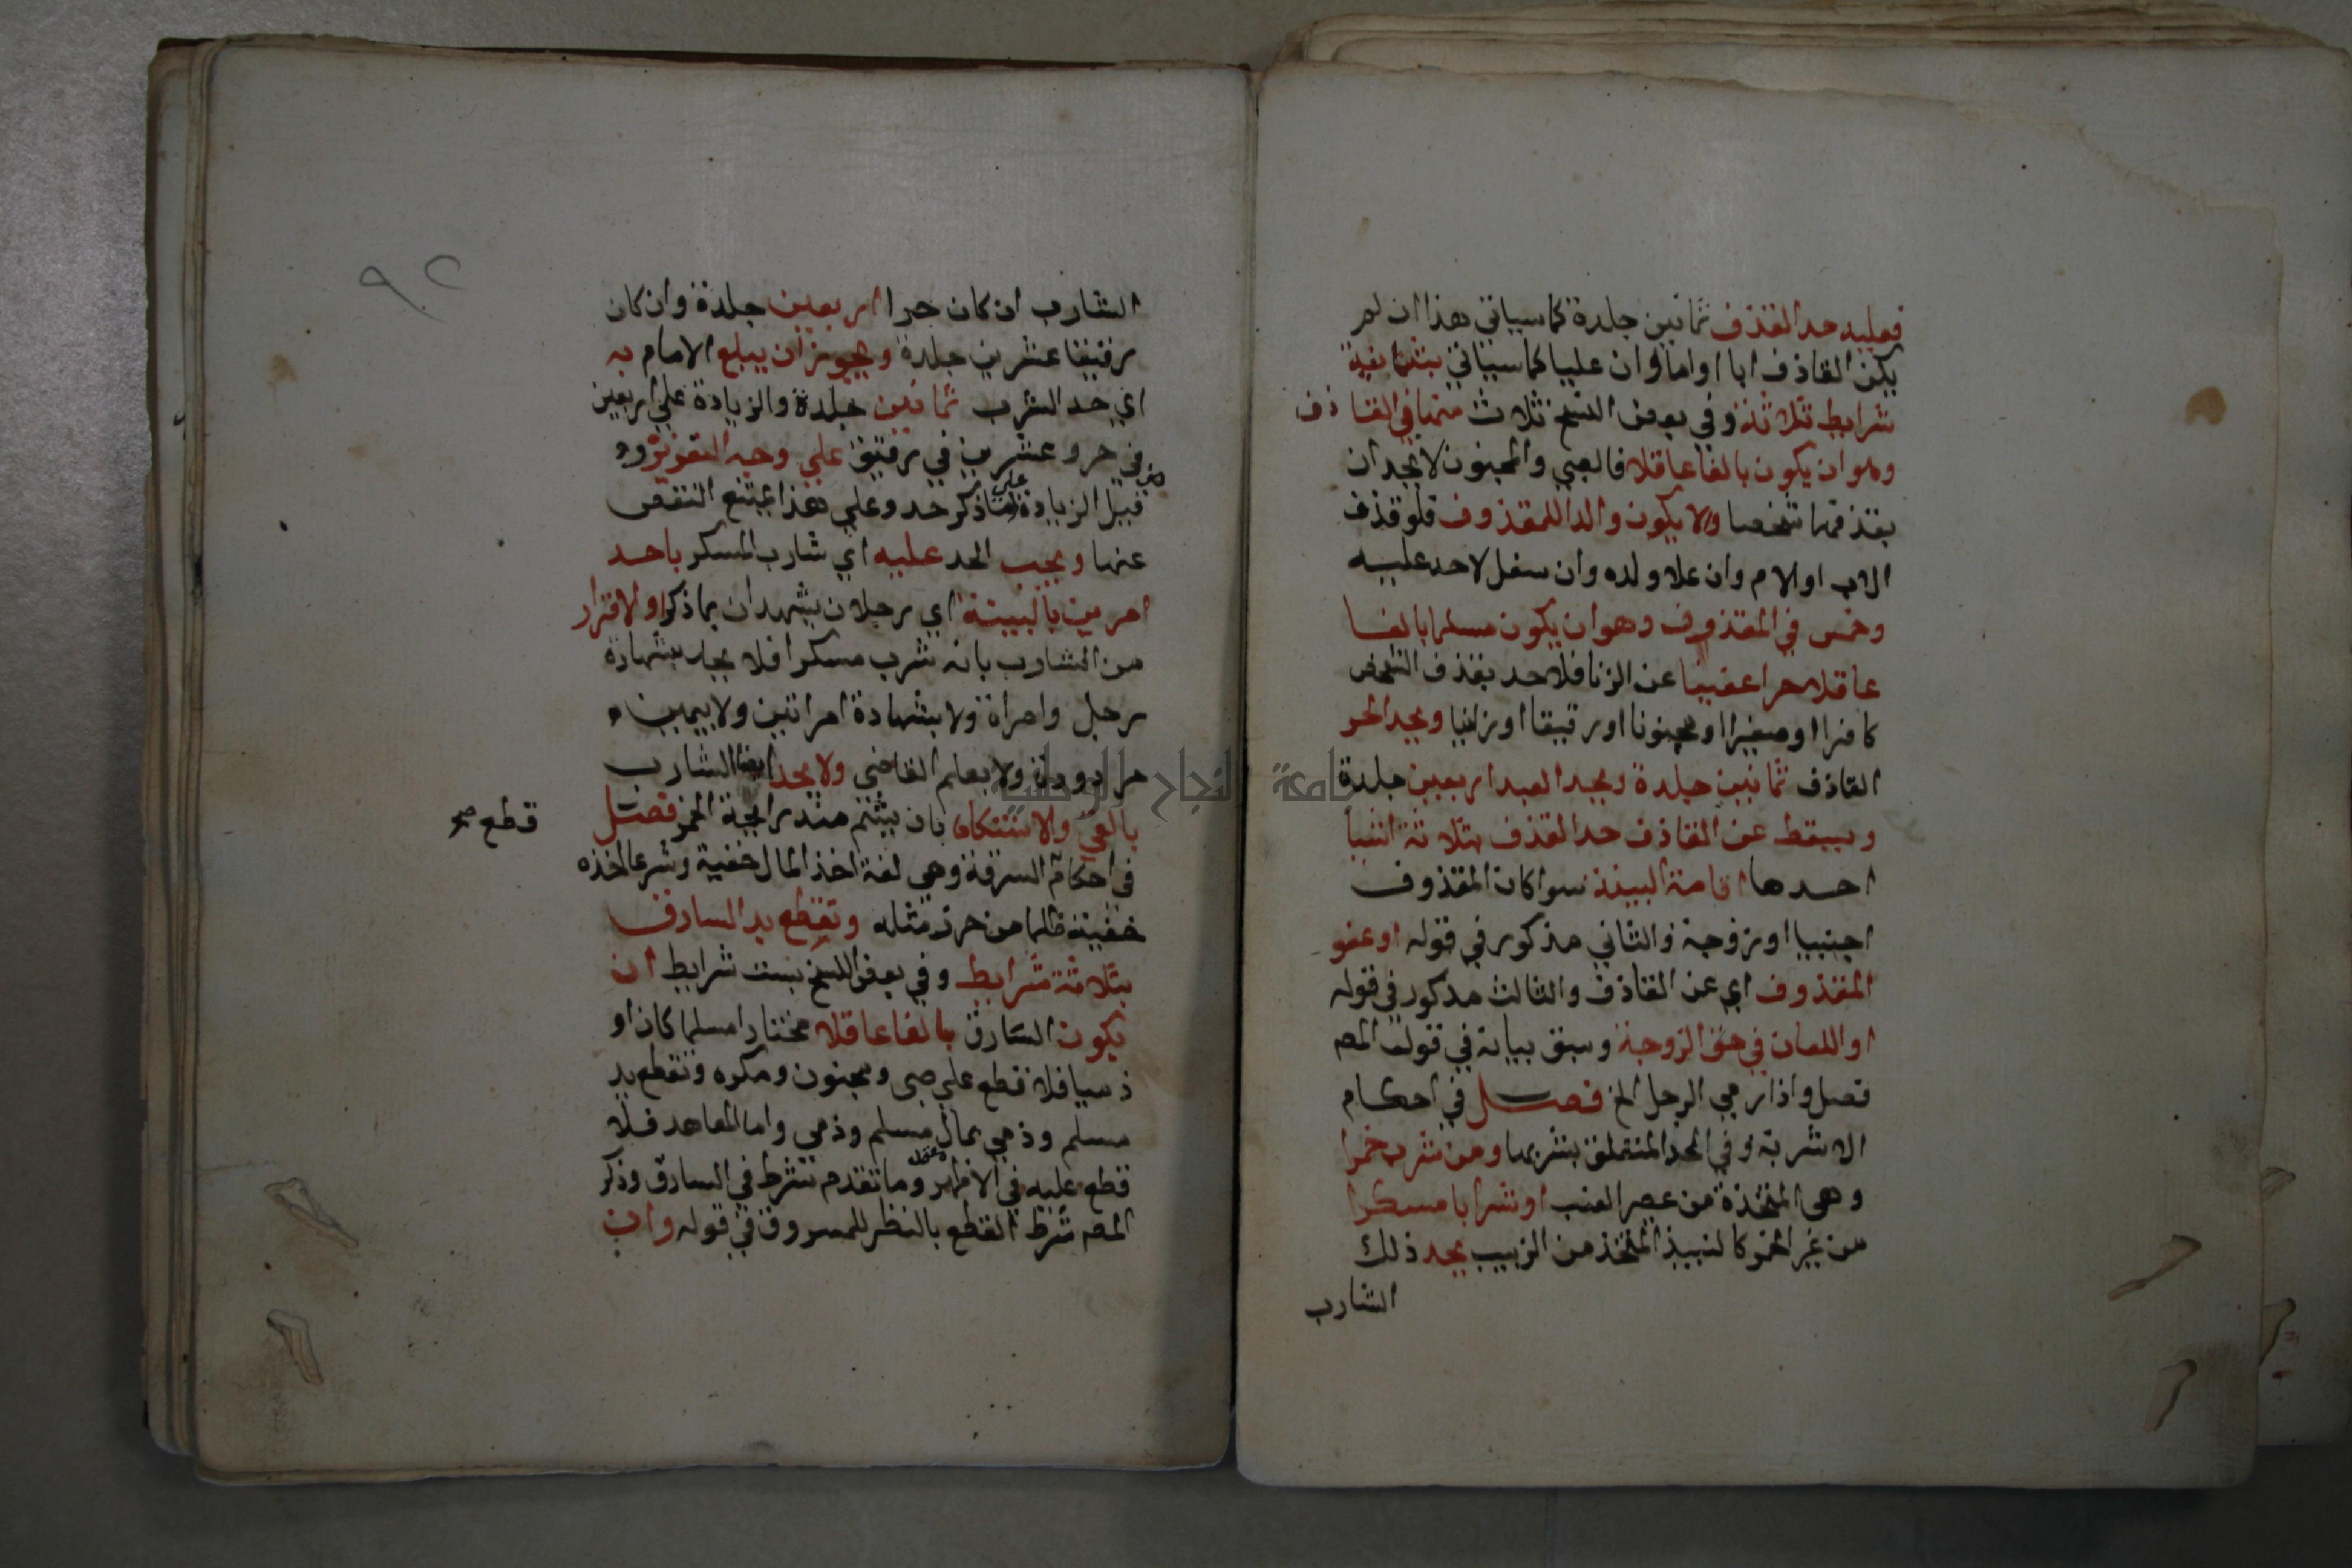 فعليه حد القذف ثمانين جلدة كما سياتي هذا ان لم
يكن القاذف ابا او اما وان عليا كما سياتي بثمانية
شرايط ثلاثة وفي بعض النسخ ثلاث منها في القاذف
وهو ان يكون بالغا عاقلا فالصبي والمجنون لا يحد ان
بقذفهما شخصا ولا يكون والدا للمقذوف فلو قذف
الاب او الام وان علا ولده وان سفل لا حد عليه
وخمس في المقذوف وهو ان يكون مسلما بالغا
عاقلا حرا عفيفا عن الزنا فلا حد بقذف الشخص
كافرا او صغيرا او مجنونا او رقيقا او زانيا ويحد الحر
القاذف ثمانين جلدة ويحد العبد اربعين جلدة
ويسقط عن القاذف حد القذف بثلاثة اشيا
احدها اقامة البينة سوا كان المقذوف
اجنبيا او زوجة والثاني مذكور في قوله او عفو
المقذوف اي عن القاذف والثالث مذكور في قوله
او اللعان في حق الزوجة وسبق بيانه في قول المصـ
فصل واذا رمي الرجل الخ فصل في احكام
الاشربة وفي الحد المتعلق بشربها ومن شرب خمرا
وهي المتخذة من عصير العنب او شرابا مسكرا
من غير الخمر كالنبيذ المتخذ من الزبيب يحد ذلك
الشارب
٩٢
الشارب ان كان حرا اربعين جلدة وان كان
رقيقا عشرين جلدة ويجوز ان يبلغ الامام به
اي حد الشرب ثمانين جلدة والزيادة علي اربعين
في حر وعشرين في رقيق علي وجه التعزير و
قيل الزيادة علي ما ذكر حد وعلي هذا يمتنع النقص
عنها ويجب الحد عليه اي شارب المسكر باحد
امرين بالبينة اي رجلان يشهدان بما ذكر او الاقرار
من الشارب بانه شرب مسكرا فلا يحد بشهادة
رجل وامراة ولا بشهادة امراتين ولا بيمين
مردودة ولا بعلم القاضي ولا يحد ايضا الشارب
بالقئ والاستنكاه بان يشم منه رايحة الخمر فصل
قطع صح
في احكام السرقة وهي لغة اخذ المال خفية وشرعا اخذه
خفية ظلما من حرز مثله وتقطع يد السارق
بثلاثة شرايط وفي بعض النسخ بست شرايط ان
يكون السارق بالغا عاقلا مختارا مسلما كان او
ذميا فلا قطع علي صبي ومجنون ومكره وتقطع يد
مسلم وذمي بمال مسلم وذمي واما المعاهد فلا
قطع عليه في الاظهر وما تقدم شرط في السارق وذكر
المصـ شرط القطع بالنظر للمسروق في قوله وان